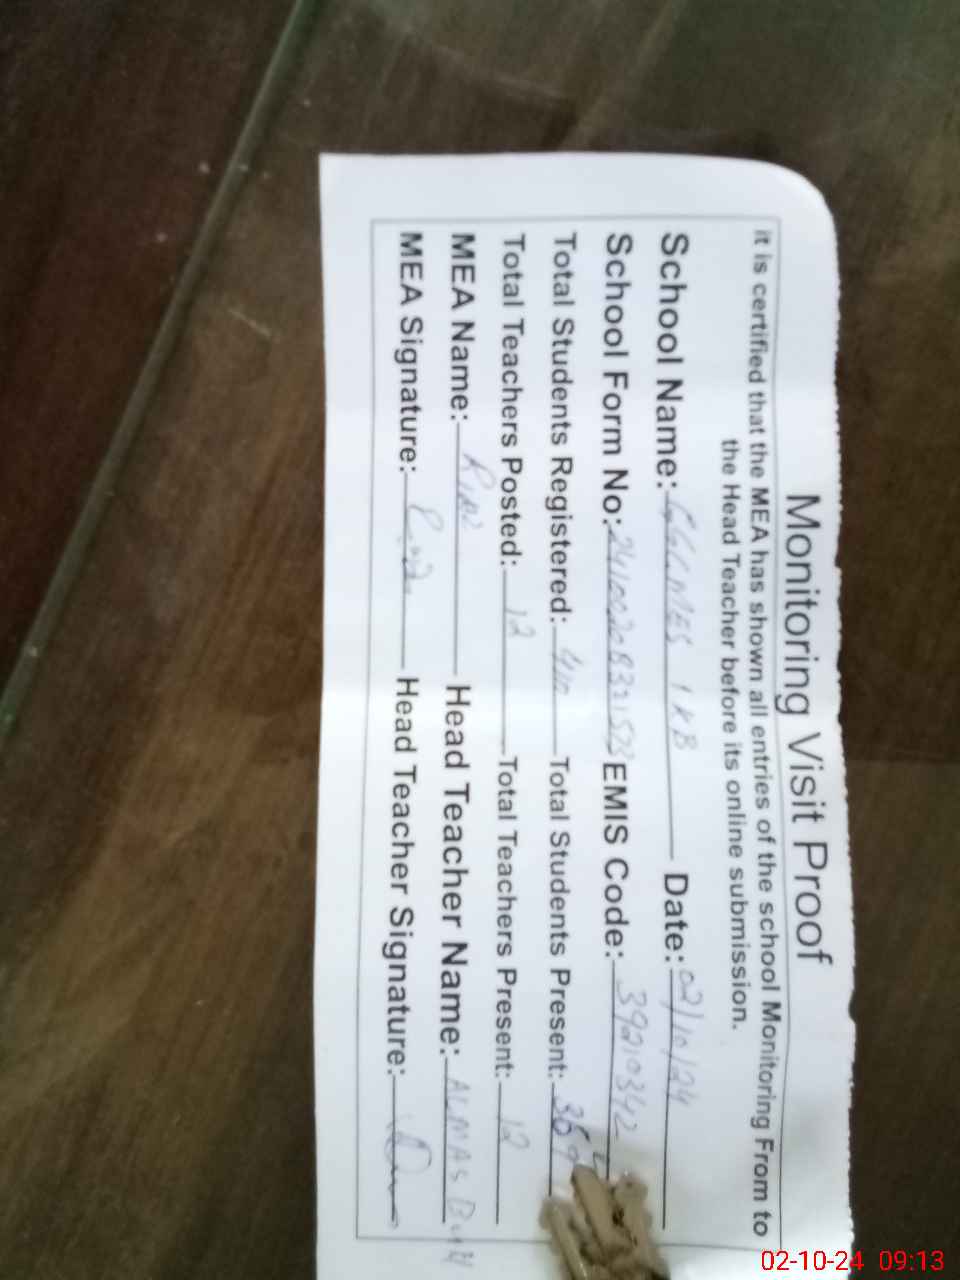 Monitoring Visit Proof
it is certified that the MEA has shown all entries of the school Monitoring From to
the Head Teacher before its online submission.
School Name: 1 KB Date: 02/10/24
School Form No: EMIS Code: 39210342
Total Students Registered: Total Students Present:
Total Teachers Posted: 12 Total Teachers Present: 12
MEA Name: Head Teacher Name: ALMAS
MEA Signature: Head Teacher Signature:
02-10-24 09:13